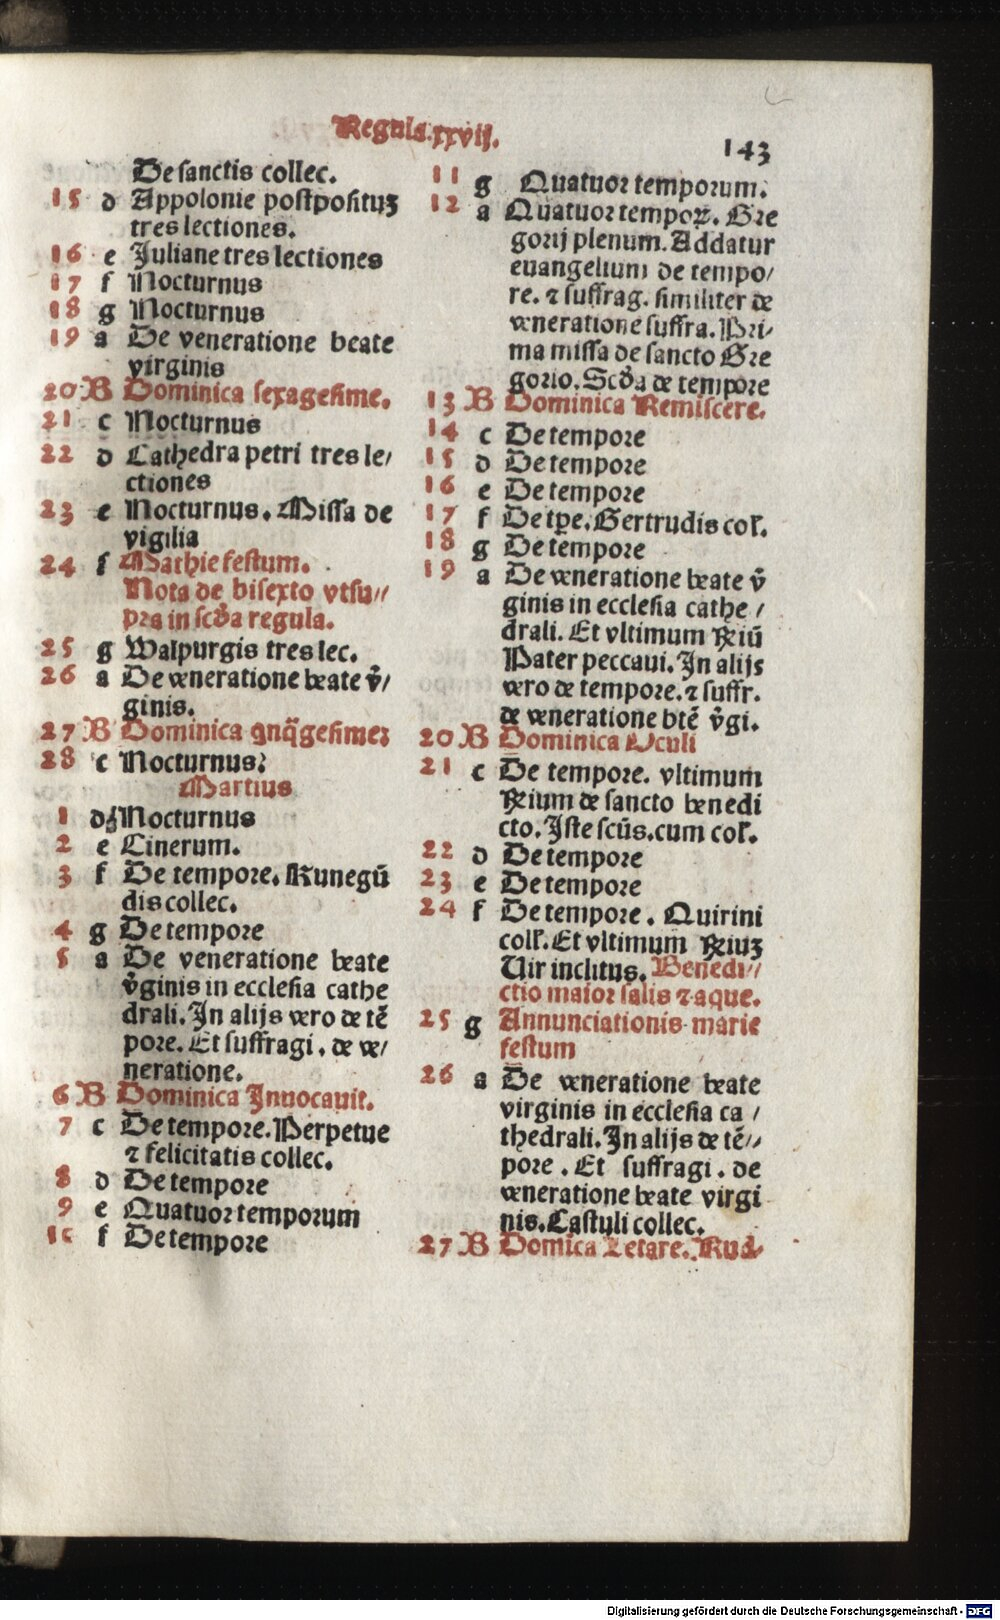 Regula.xxvij.
143
De sanctis collec.
15 d Appolonie postpositus
tres lectiones.
16 e Juliane tres lectiones
17 f Nocturnus
18 g Nocturnus
19 a De veneratione beate
virginis
20 B Dominica sexagesime.
21 c Nocturnus
22 d Cathedra petri tres le/
ctiones
23 e Nocturnus. Missa de
vigilia
24 f Mathie festum.
Nota de bisexto vtsu//
pra in scd̓a regula.
25 g Walpurgis tres lec.
26 a De veneratione beate v̓/
ginis.
27 B Dominica qnq̈gesime
28 c Nocturnus.
Martius
1 d Nocturnus
2 e Cinerum.
3 f De tempore. Kunegū
dis collec.
4 g De tempore
5 a De veneratione beate
v̓ginis in ecclesia cathe
drali. In alijs vero de tē
pore. Et suffragi. de ve/
neratione.
6 B Dominica Inuocauit.
7 c De tempore. Perpetue
⁊ felicitatis collec.
8 d De tempore
9 e Quatuor temporum
10 f De tempore
11 g Quatuor temporum.
12 a Quatuor tempoꝝ. Gre
gorij plenum. Addatur
euangelium de tempo/
re. ⁊ suffrag. similiter de
veneratione suffra. Pri/
ma missa de sancto Gre
gorio. Scd̓a de tempore
13 B Dominica Remiscere.
14 c De tempore
15 d De tempore
16 e De tempore
17 f De tꝑe. Gertrudis col̓.
18 g De tempore
19 a De veneratione beate v̓
ginis in ecclesia cathe/
drali. Et vltimum ℟iū
Pater peccaui. In alijs
vero de tempore. ⁊ suffr.
de veneratione btē v̓gi.
20 B Dominica Oculi
21 c De tempore. vltimum
℟ium de sancto benedi
cto. Iste scūs. cum col̓.
22 d De tempore
23 e De tempore
24 f De tempore. Quirini
coll̓. Et vltimum ℟iuz
Uir inclitus. Benedi//
ctio maior salis ⁊ aque.
25 g Annunciationis marie
festum
26 a De veneratione beate
virginis in ecclesia ca/
thedrali. In alijs de tē//
pore. Et suffragi. de
veneratione beate virgi
nis. Castuli collec.
27 B Domica Letare. Rud/
Digitalisierung gefördert durch die Deutsche Forschungsgemeinschaft - DFG